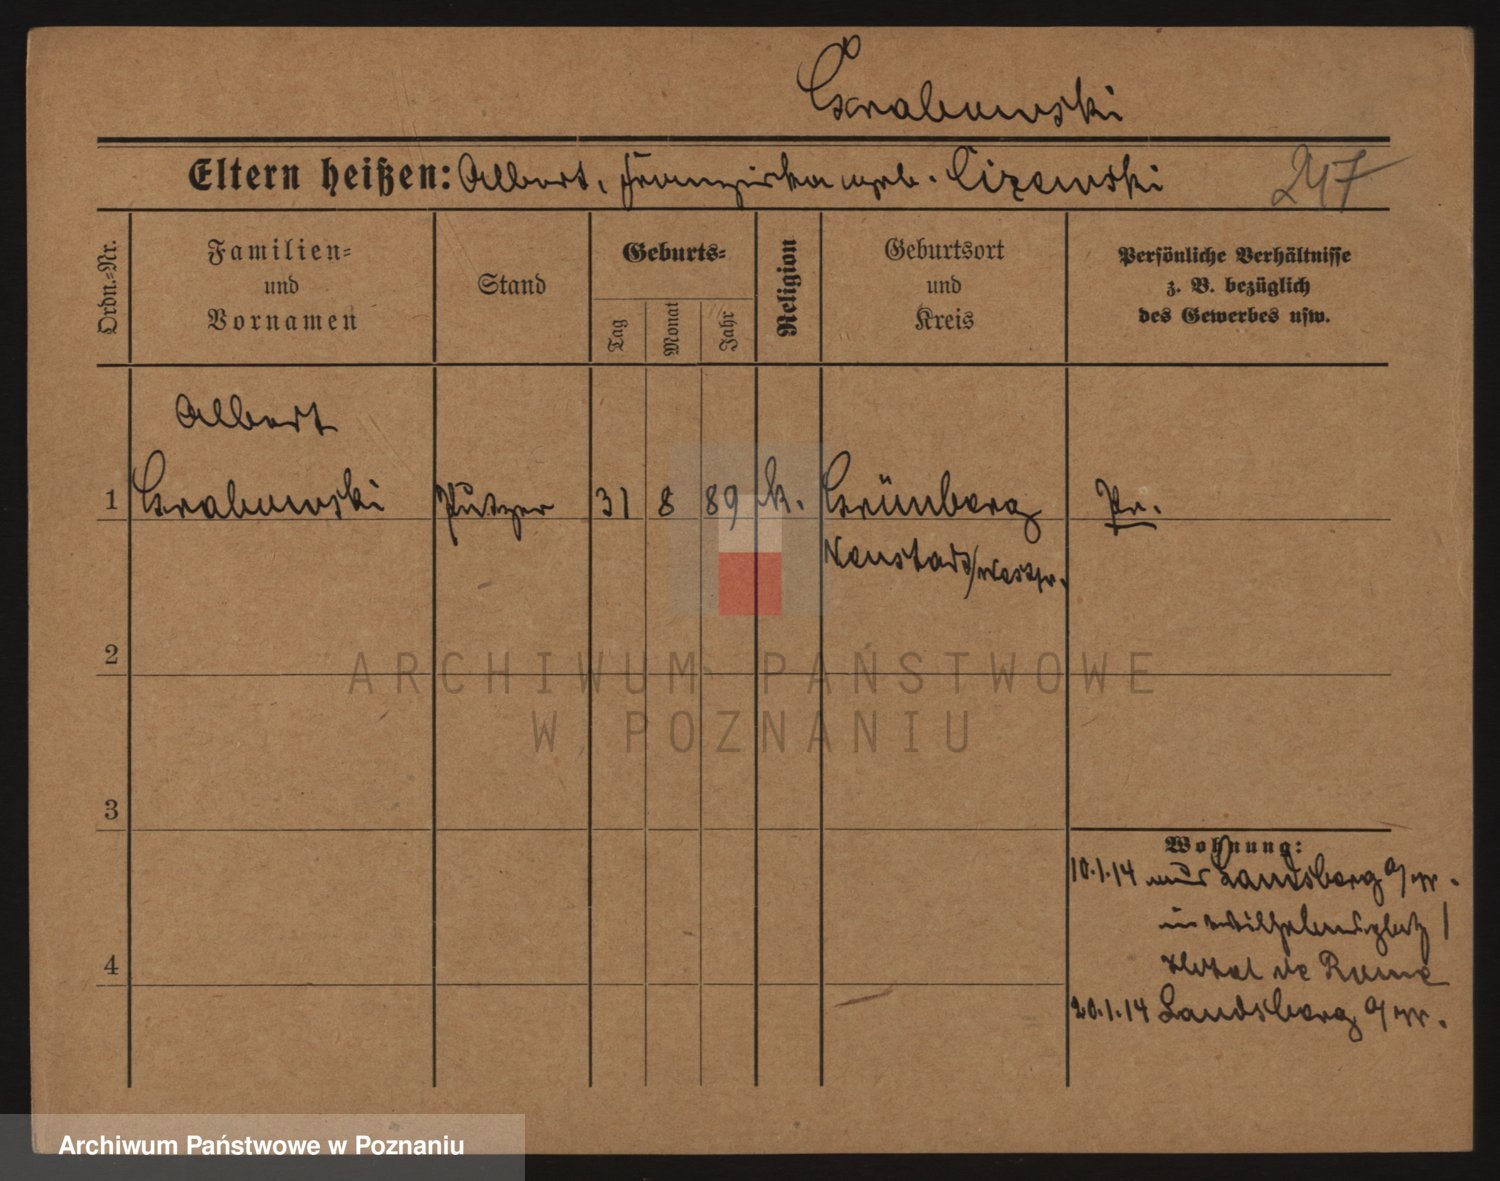 Grabowski
Eltern heißen: Albert, Franziska geb. Cizewski
247
Ordn.=Nr.
Familien=
und
Vornamen
Stand
Geburts=
Tag
Monat
Jahr
Religion
Geburtsort
und
Kreis
Persönliche Verhältnisse
z. B. bezüglich
des Gewerbes usw.
Albert
1 Grabowski Putzer 31 8 89 k. Grünberg Pr.
Neustadt/Westpr.
2
3
4
Wohnung:
10.1.14 aus Landsberg a/W.
in Wilhelmsplatz 1
Hotel de Rome
20.1.14 Landsberg a/W.
ARCHIWUM PAŃSTWOWE
W POZNANIU
Archiwum Państwowe w Poznaniu